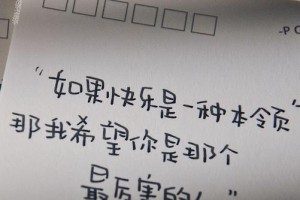 -P
"如果快乐是一种本领
那我希望你是那个
最厉害的